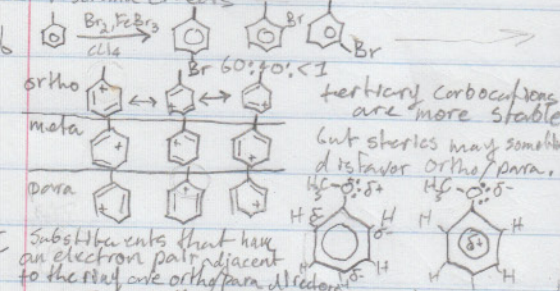 b
Br₂, FeBr₃
CCl₄
Br
Br
Br 60:40:<1
ortho
tertiary carbocations
are more stable
meta
but sterics may
disfavor ortho/para.
para
H₃C-O: δ+
H₃C-O: δ-
H δ- H δ- H H
δ+
H δ- H H H
Substituents that have
an electron pair adjacent
to the ring are ortho/para directors